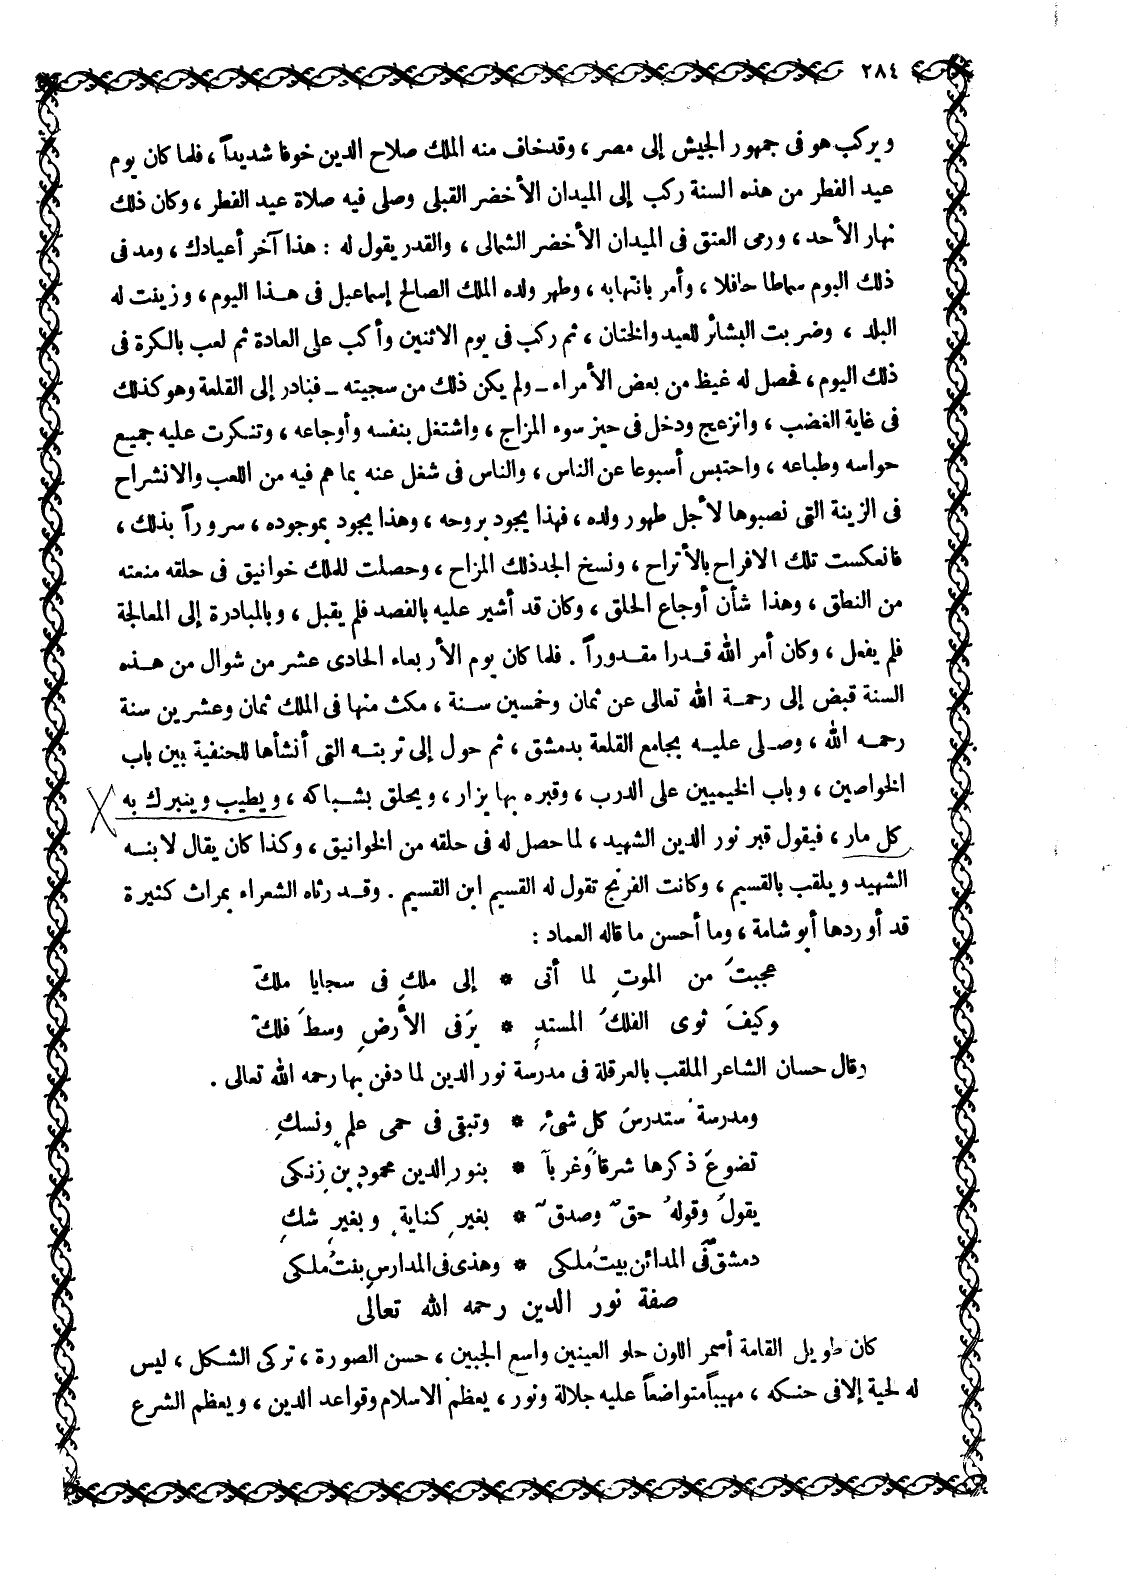 ٢٨٤
ويركب هو فى جمهور الجيش إلى مصر ، وقدخاف منه الملك صلاح الدين خوفا شديداً ، فلما كان يوم
عيد الفطر من هذه السنة ركب إلى الميدان الأخضر القبلى وصلى فيه صلاة عيد الفطر ، وكان ذلك
نهار الأحد ، ورمى العنق فى الميدان الأخضر الشمالى ، والقدر يقول له : هذا آخر أعيادك ، ومد فى
ذلك اليوم سماطا حافلا ، وأمر بانتهابه ، وطهر ولده الملك الصالح إسماعيل فى هذا اليوم ، وزينت له
البلد ، وضربت البشائر للعيد والختان ، ثم ركب فى يوم الاثنين وأكب على العادة ثم لعب بالكرة فى
ذلك اليوم ، فحصل له غيظ من بعض الأمراء ــ ولم يكن ذلك من سجيته ــ فبادر إلى القلعة وهو كذلك
فى غاية الغضب ، وانزعج ودخل فى حيز سوء المزاج ، واشتغل بنفسه وأوجاعه ، وتنكرت عليه جميع
حواسه وطباعه ، واحتبس أسبوعا عن الناس ، والناس فى شغل عنه بما هم فيه من اللعب والانشراح
فى الزينة التى نصبوها لأجل طهور ولده ، فهذا يجود بروحه ، وهذا يجود بموجوده ، سروراً بذلك ،
فانعكست تلك الافراح بالأتراح ، ونسخ الجد ذلك المزاح ، وحصلت للملك خوانيق فى حلقه منعته
من النطق ، وهذا شأن أوجاع الحلق ، وكان قد أشير عليه بالفصد فلم يقبل ، وبالمبادرة إلى المعالجة
فلم يفعل ، وكان أمر الله قدرا مقدوراً . فلما كان يوم الأربعاء الحادى عشر من شوال من هذه
السنة قبض إلى رحمة الله تعالى عن ثمان وخمسين سنة ، مكث منها فى الملك ثمان وعشرين سنة
رحمه الله ، وصلى عليه بجامع القلعة بدمشق ، ثم حول إلى تربته التى أنشأها للحنفية بين باب
الخواصين ، وباب الخيميين على الدرب ، وقبره بها يزار ، ويحلق بشباكه ، ويطيب ويتبرك به
كل مار ، فيقول قبر نور الدين الشهيد ، لما حصل له فى حلقه من الخوانيق ، وكذا كان يقال لابنه
الشهيد ويلقب بالقسيم ، وكانت الفرنج تقول له القسيم ابن القسيم . وقد رثاه الشعراء بمراث كثيرة
قد أوردها أبو شامة ، وما أحسن ما قاله العماد :
عجبتَ من الموتِ لما أتى * إلى ملكٍ فى سجايا ملكّ
وكيفَ ثوى الفلكُ المستدِ * يرَ فى الأرضِ وسطَ فلكْ
وقال حسان الشاعر الملقب بالعرقلة فى مدرسة نور الدين لما دفن بها رحمه الله تعالى .
ومدرسةٌ ستدرسُ كل شئٍ * وتبقى فى حمى علمٍ ونسكِ
تضوعَ ذكرها شرقاً وغرباً * بنورِ الدين محمودِ بنِ زنكى
يقولُ وقولهُ حقٌ وصدقٌ * بغيرِ كنايةٍ وبغيرِ شكِ
دمشقُ فى المدائن بيتُ ملكى * وهذى فى المدارسِ بنتُ ملكى
صفة نور الدين رحمه الله تعالى
كان طويل القامة أسمر اللون حلو العينين واسع الجبين ، حسن الصورة ، تركى الشكل ، ليس
له لحية إلا فى حنكه ، مهيباً متواضعاً عليه جلالة ونور ، يعظم الاسلام وقواعد الدين ، ويعظم الشرع